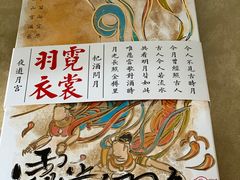 今人不見古時月
今月曾經照古人
古人今人若流水
共看明月皆如此
唯愿當歌對酒時
月光長照金樽里
把酒問月
霓裳
羽衣
夜遊月宮